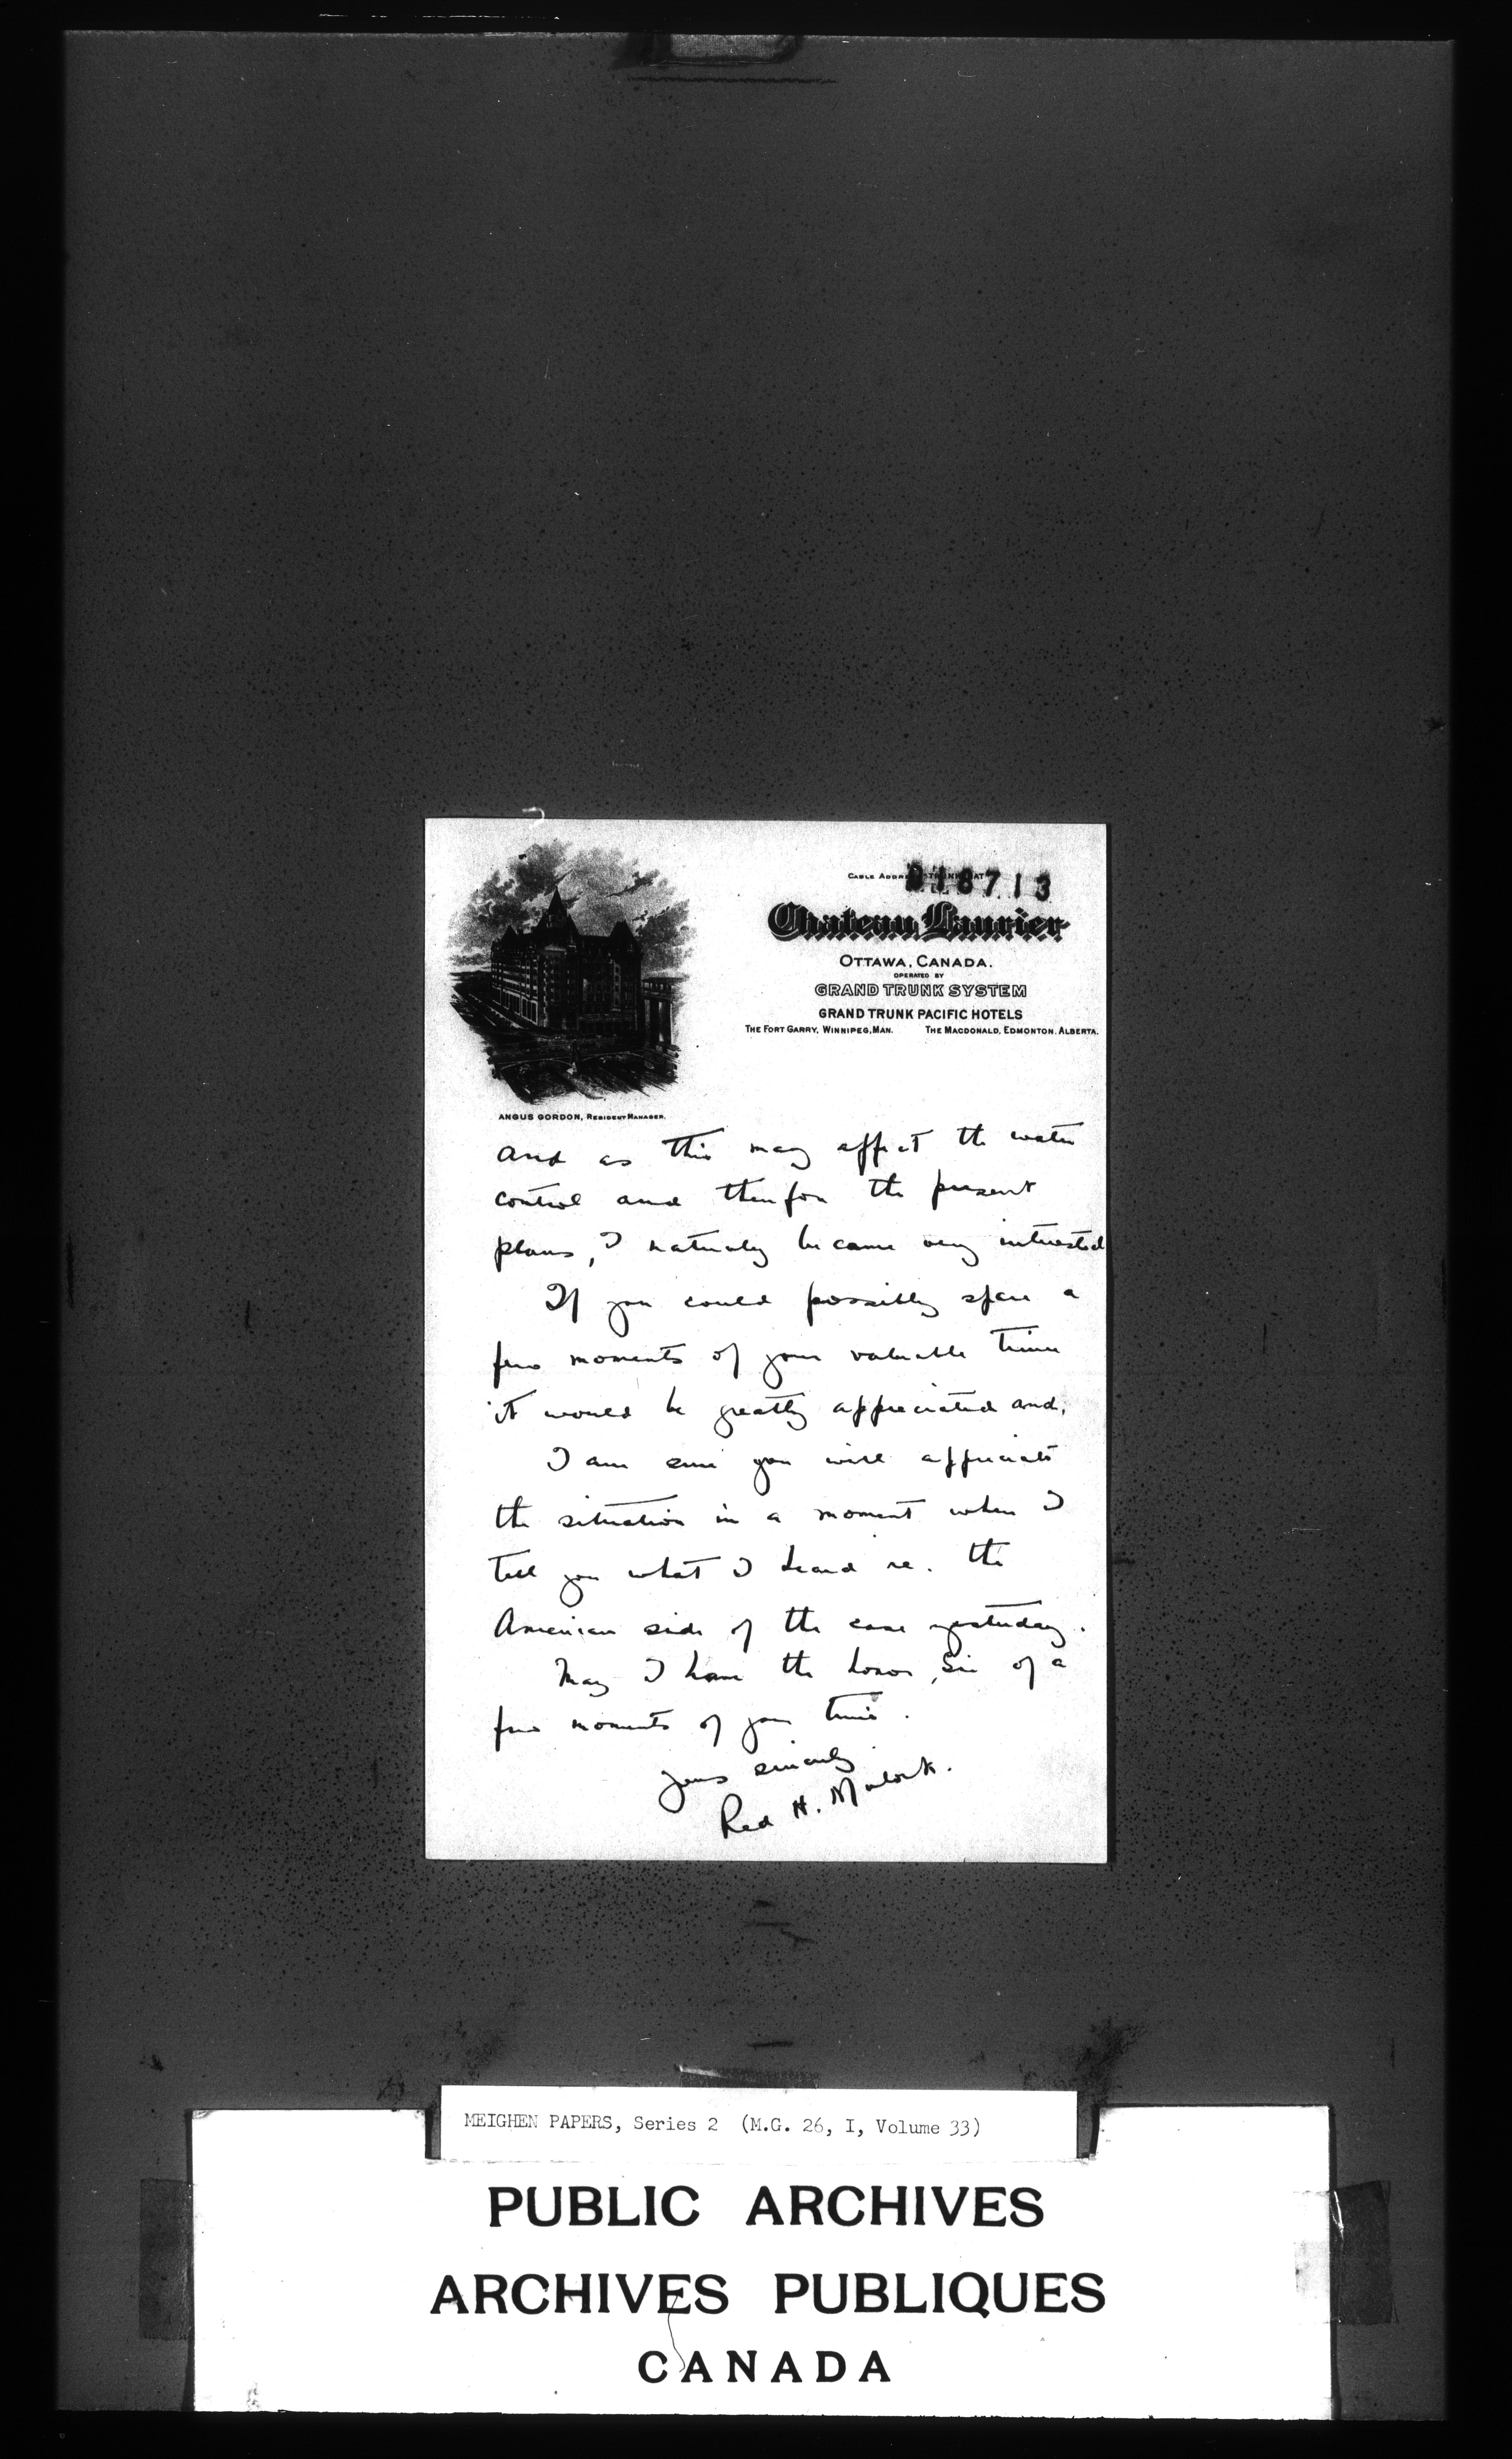 018713
Chateau Laurier
OTTAWA, CANADA.
OPERATED BY
GRAND TRUNK SYSTEM
GRAND TRUNK PACIFIC HOTELS
THE FORT GARRY, WINNIPEG, MAN. THE MACDONALD, EDMONTON. ALBERTA.
ANGUS GORDON, RESIDENT MANAGER.
and as this may affect the water
control and therefore the present
plans, I naturaly became very interested
If you could possibly spare a
few moments of your valuable time
it would be greatly appreciated and,
I am sure you will appreciate
the situation in a moment when I
tell you what I heard re. the
American side of the case yesterday.
May I have the honor, Sir of a
few moments of your time.
yours sincerely
Red H. Mulock.
MEIGHEN PAPERS, Series 2 (M.G. 26, I, Volume 33)
PUBLIC ARCHIVES
ARCHIVES PUBLIQUES
CANADA